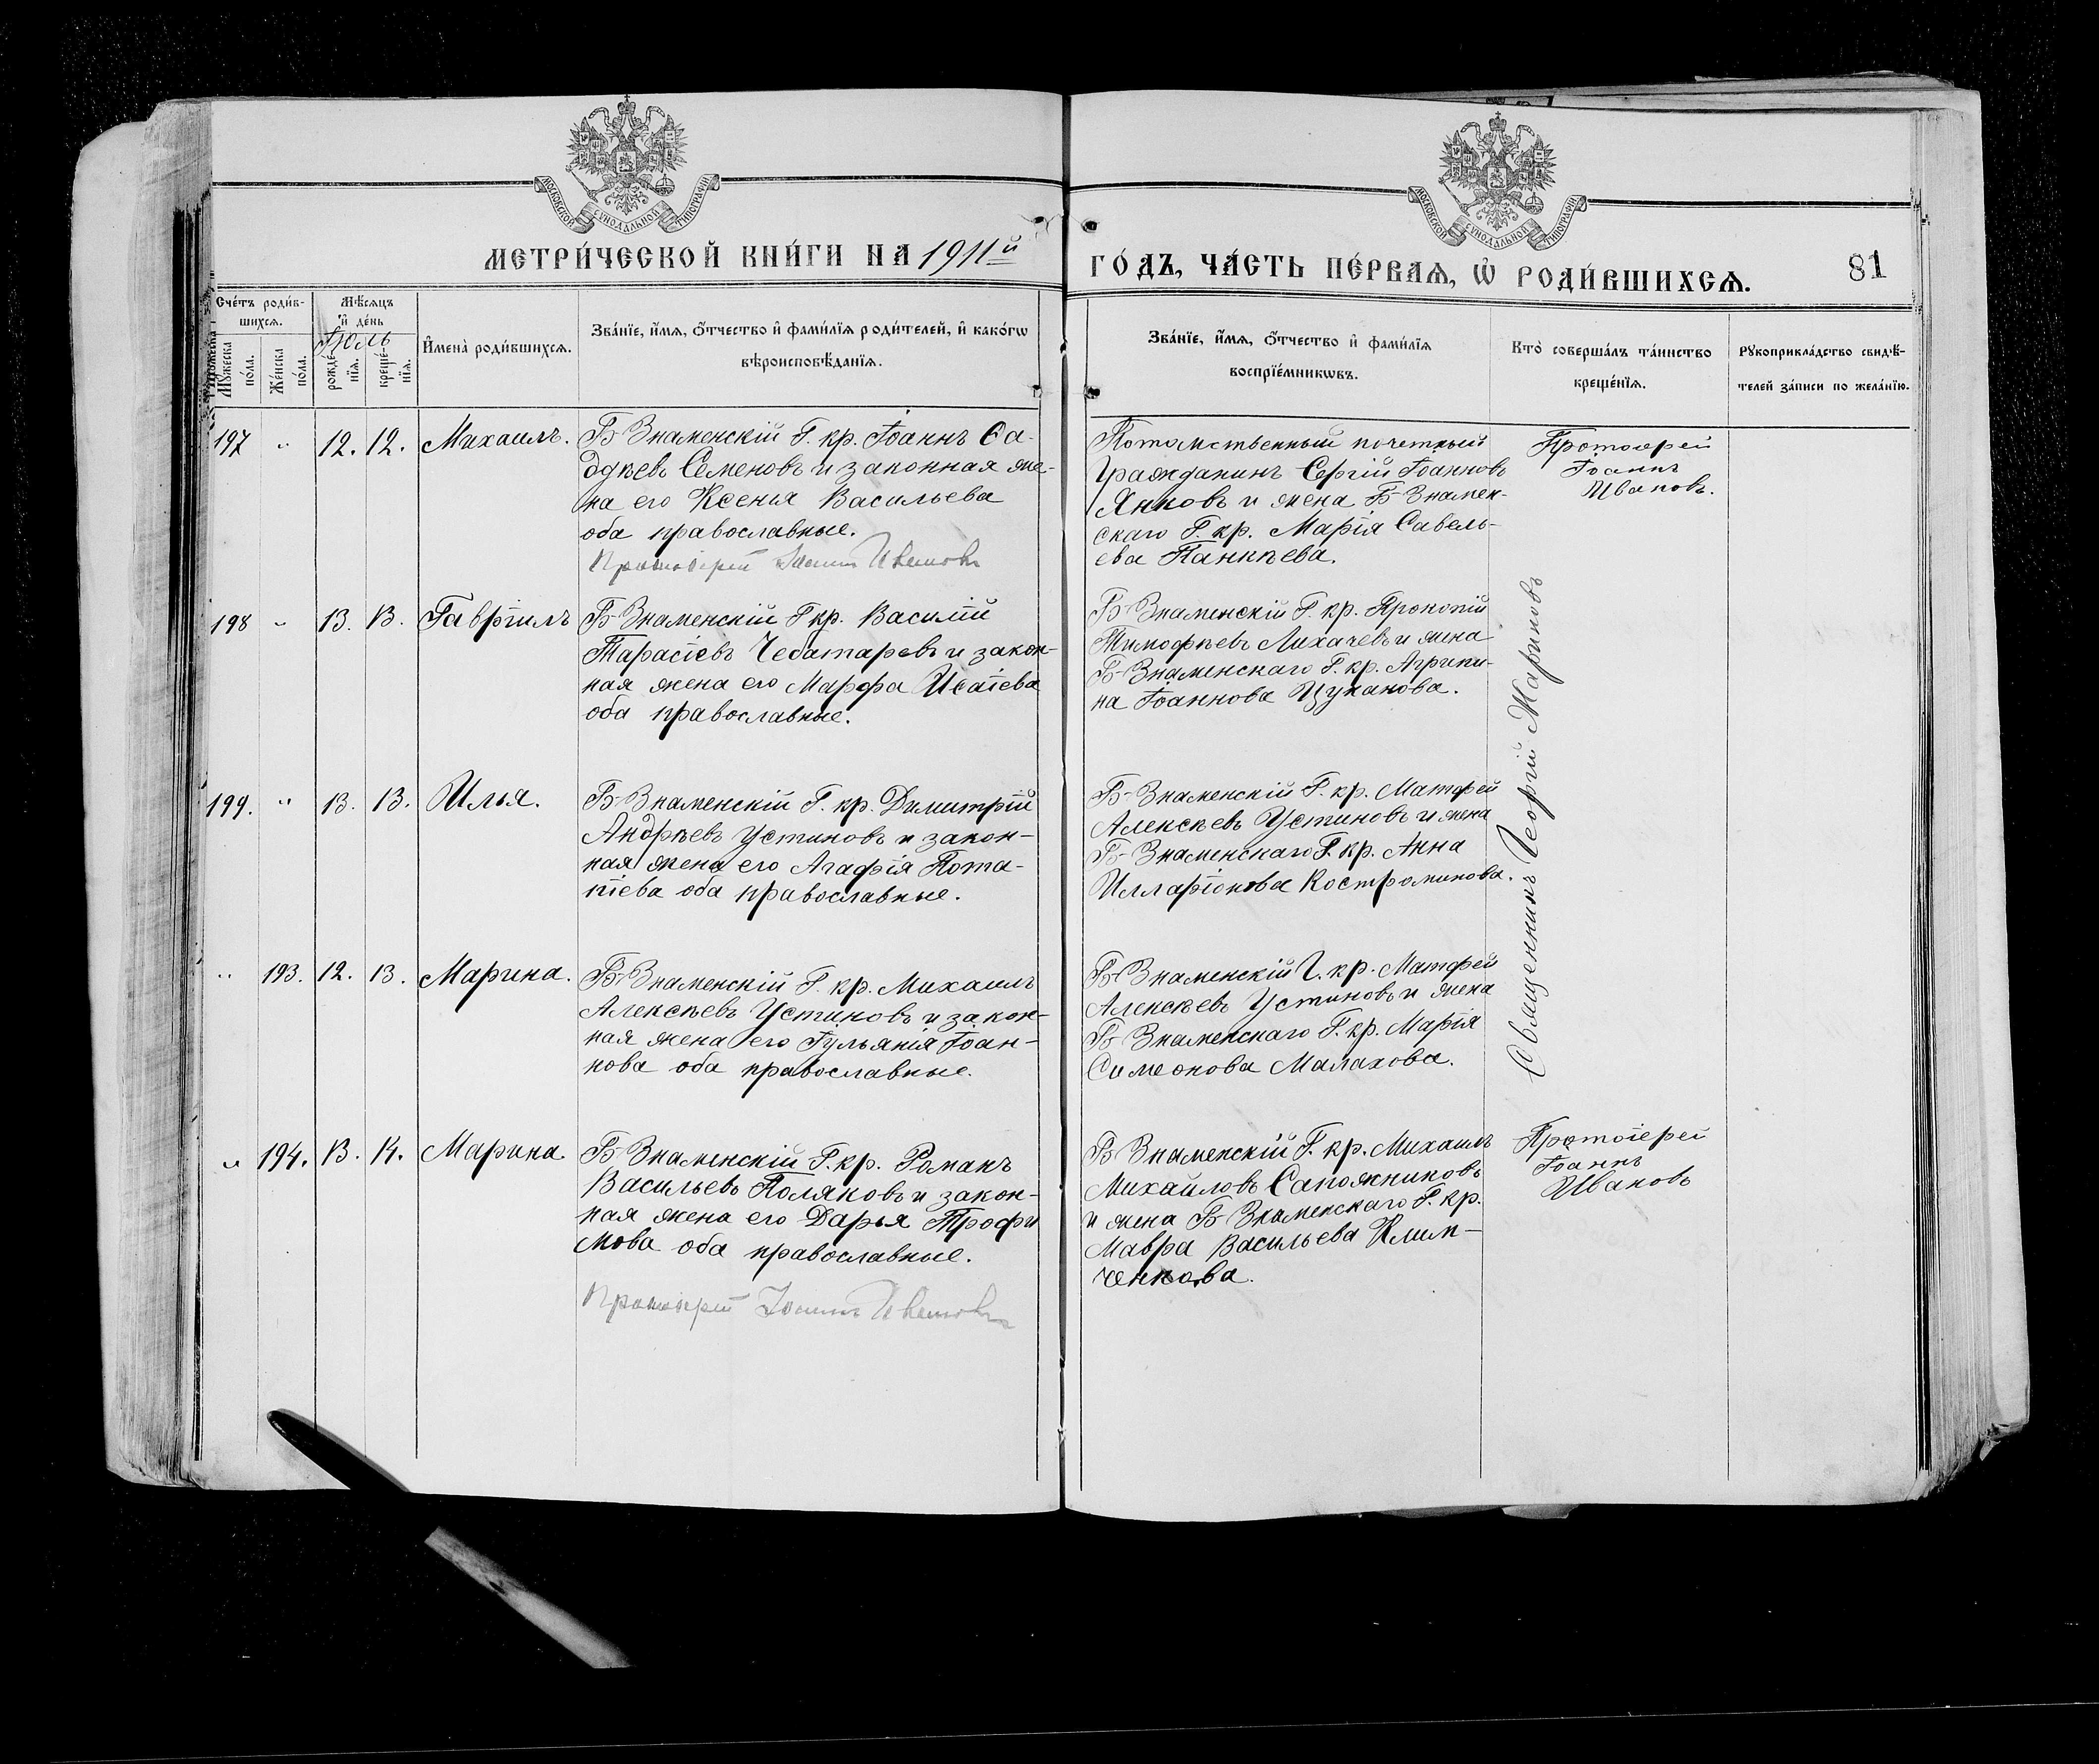 МОСКОВСКОЙ СѴНОДАЛЬНОЙ ТИПОГРАФІИ
МОСКОВСКОЙ СѴНОДАЛЬНОЙ ТИПОГРАФІИ
МЕТРИ́ЧЕСКОЙ КНИ́ГИ НА 1911й
ГО́ДЪ, ЧА́СТЬ ПЕ́РВАѦ, Ѡ҆ РОДИ́ВШИХСѦ.
81
Сче́тъ роди́в-
шихсѧ.
Мѣ́сѧцъ
и҆ де́нь
Іюль
Мꙋ́жеска
по́ла.
Же́нска
по́ла.
рожде́-
нїѧ.
креще́-
нїѧ.
И҆мена̀ роди́вшихсѧ.
Зва́нїе, и҆́мѧ, ѻ҆́тчество и҆ фами́лїѧ роди́телей, и҆ како́гѡ
вѣроисповѣ́данїѧ.
Зва́нїе, и҆́мѧ, ѻ҆́тчество и҆ фами́лїѧ
воспрїе́мникѡвъ.
Кто̀ соверша́лъ та́инство
креще́нїѧ.
Рꙋкоприкла́дство свидѣ́-
телей за́писи по жела́нїю.
197 " 12. 12. Михаилъ.
Б Знаменскій Г. кр. Іоаннъ Са-
дѣевъ Семеновъ и законная же-
на его Ксенья Васильева
оба православные.
Протоіерей Іоаннъ Ивановъ
Потомственный почетный
Гражданинъ Сергій Іоанновъ
Янковъ и жена Б-Знамен-
скаго Г. кр. Марія Савель-
ева Панкѣева.
Протоіерей
Іоаннъ
Ивановъ.
198 " 13. 13. Гавріилъ
Б-Знаменскій Г кр. Василій
Тарасіевъ Чебатаревъ и закон-
ная жена его Марфа Исаіева
оба православные.
Б-Знаменскій Г. кр. Прокопій
Тимофѣевъ Лихачевъ и жена
Б-Знаменскаго Г. кр. Агрипи-
на Іоаннова Цуканова.
199. " 13. 13. Илья.
Б-Знаменскій Г. кр. Димитрій
Андрѣевъ Устиновъ и закон-
ная жена его Агафія Пота-
піева оба православные.
Б-Знаменскій Г. кр. Матфей
Алексѣевъ Устиновъ и жена
Б-Знаменскаго Г. кр. Анна
Илларіонова Костромикова.
" 193. 12. 13. Марина.
Б-Знаменскій Г. кр. Михаилъ
Алексѣевъ Устиновъ и закон-
ная жена его Іульянія Іоан-
нова оба православные.
Б-Знаменскій Г. кр. Матфей
Алексѣевъ Устиновъ и жена
Б-Знаменскаго Г. кр. Марія
Симеонова Малахова.
Священникъ Георгій Жариновъ
" 194. 13. 14. Марина.
Б-Знаменскій Г. кр. Романъ
Васильевъ Поляковъ и закон-
ная жена его Дарья Трофи
мова оба православные.
Протоіерей Іоаннъ Ивановъ
Б Знаменскій Г. кр. Михаилъ
Михайловъ Сапожниковъ
и жена Б-Знаменскаго Г. кр.
Мавра Васильева Клим-
ченкова.
Протоіерей
Іоаннъ
Ивановъ